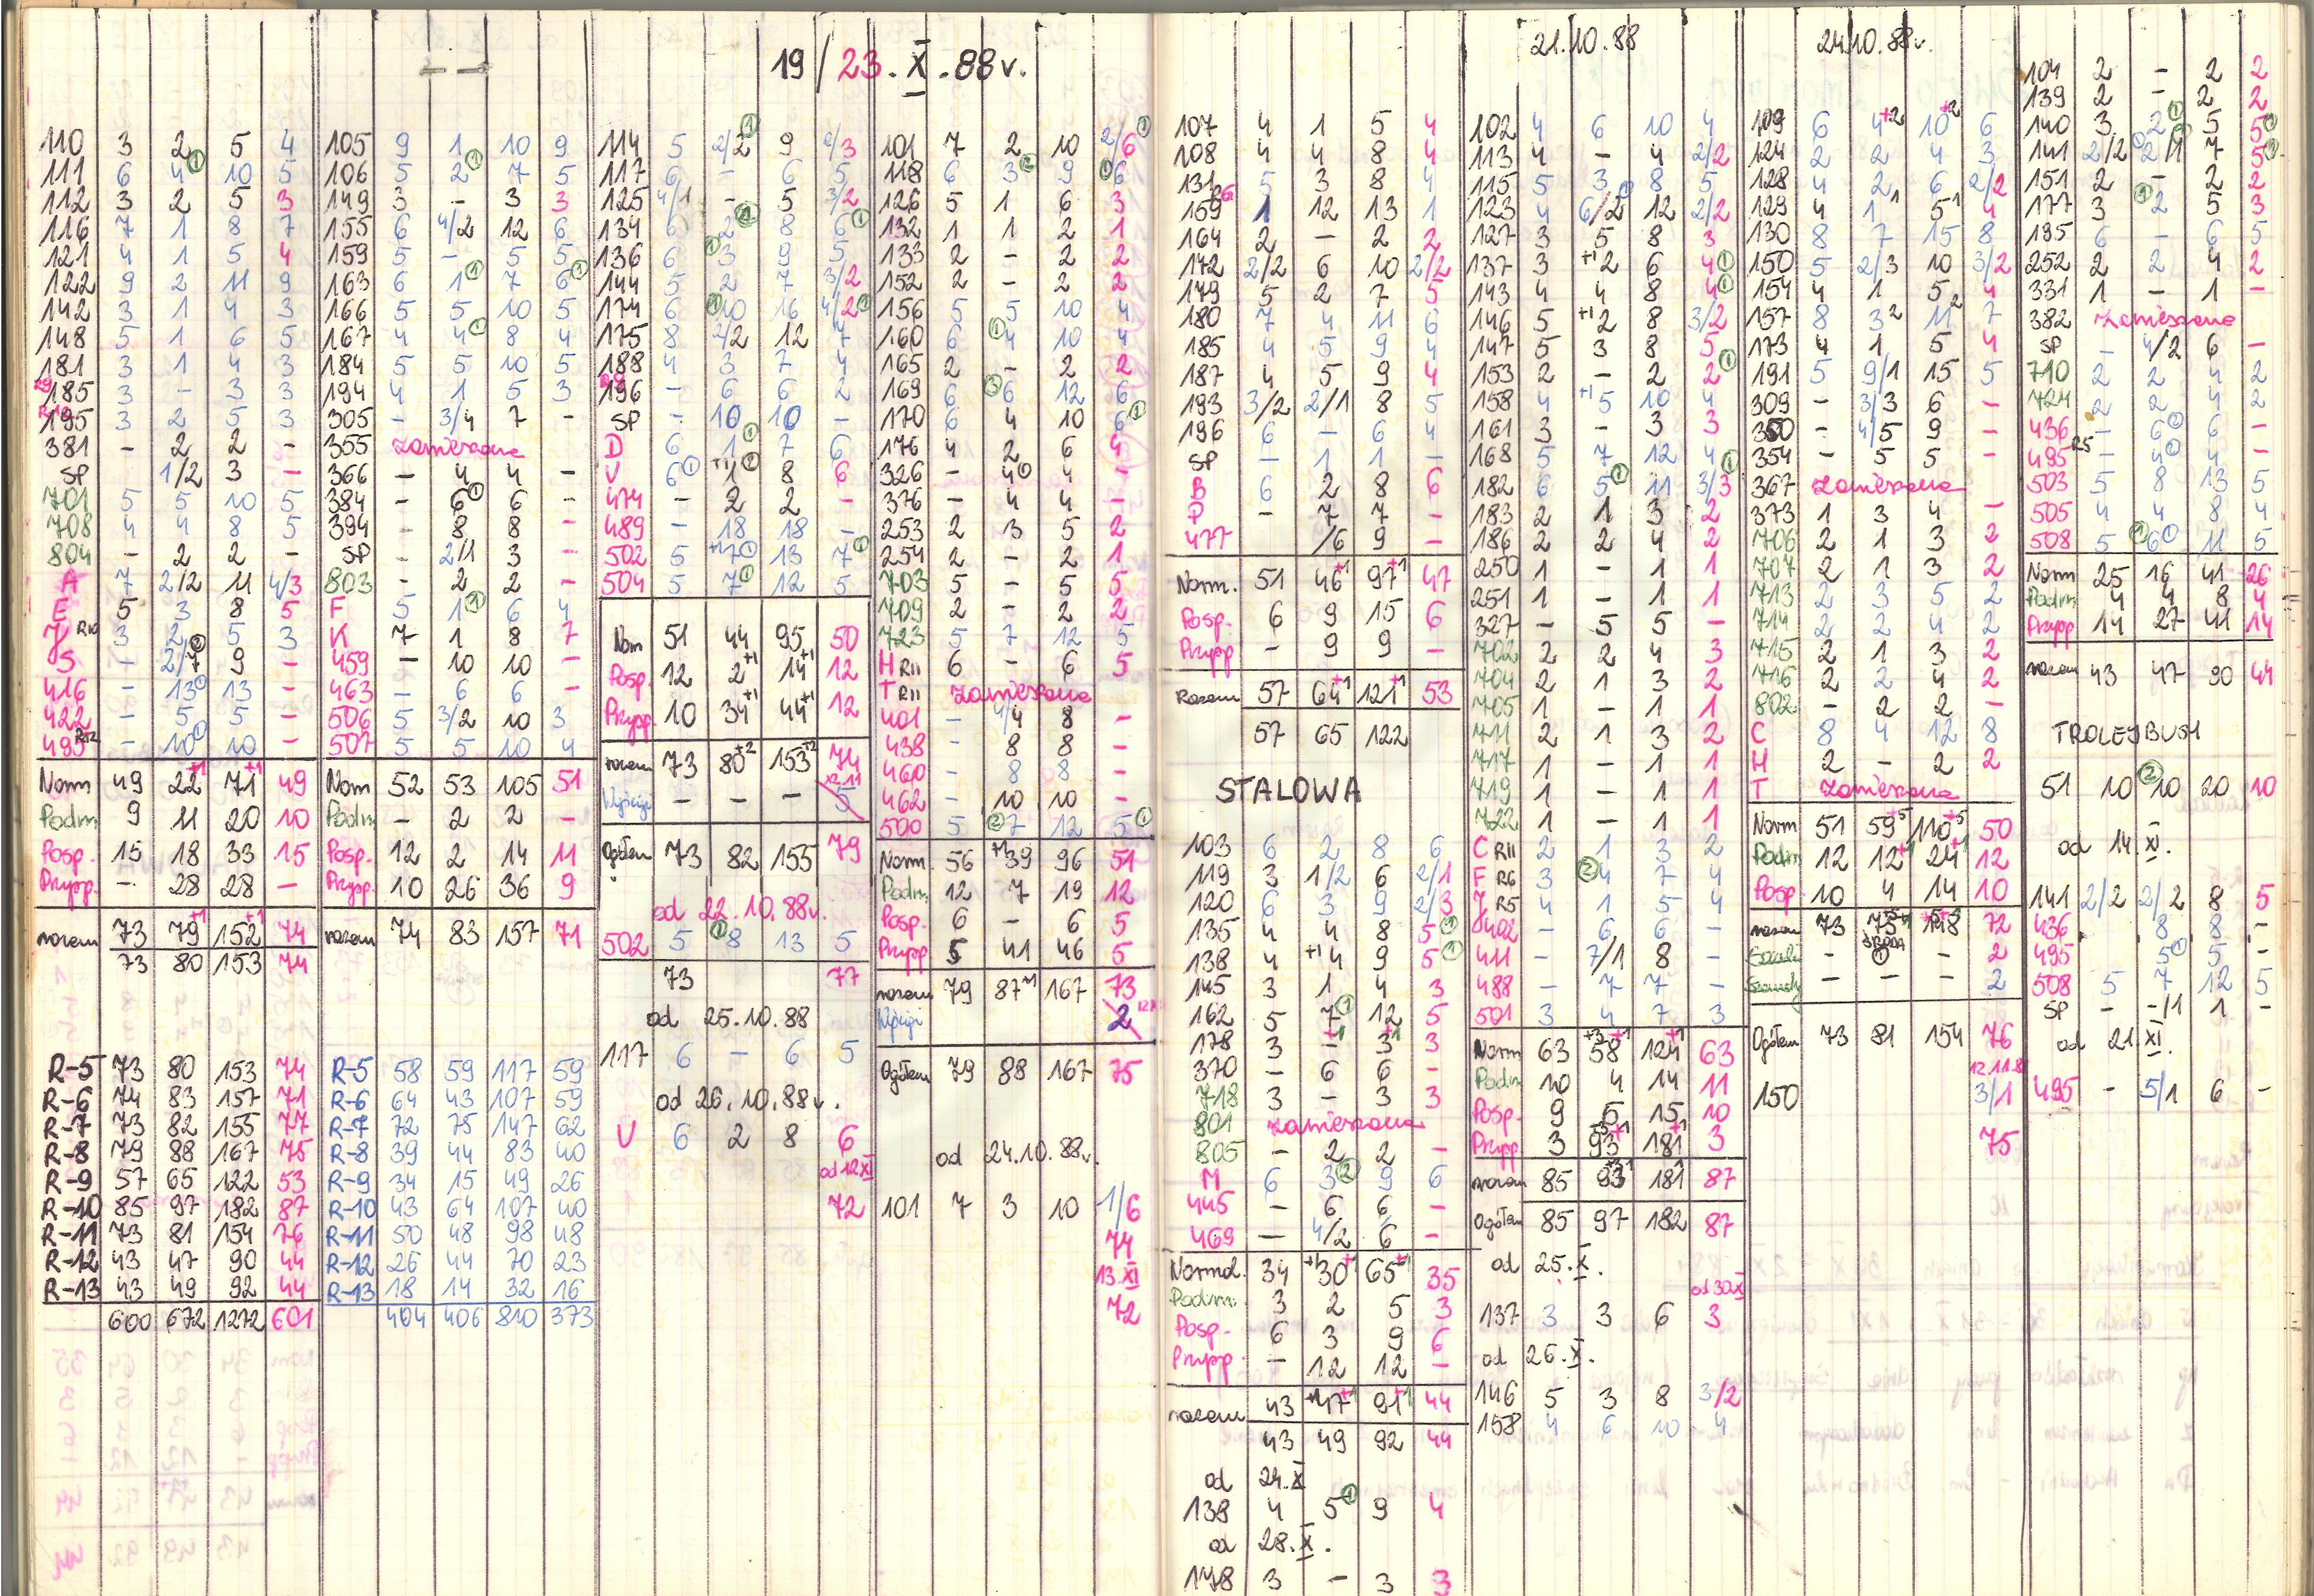 19/23.X.88r.
110 3 2 5 4
111 6 4① 10 5
112 3 2 5 3
116 7 1 8 7
121 4 1 5 4
122 9 2 11 9
142 3 1 4 3
148 5 1 6 5
181 3 1 4 3
185 3 - 3 3
195 3 2 5 3
381 - 2 2 -
SP 1/2 3 -
701 5 5 10 5
708 4 4 8 5
804 - 2 2 -
A 7 2/2 11 4/3
E 5 3 8 5
J R10 3 2 5 3
S - 2/7 9 -
416 - 13① 13 -
422 - 5 5 -
495 R12 - 10① 10 -
Norm 49 22+1 71+1 49
Podm 9 11 20 10
Posp. 15 18 33 15
Przysp. - 28 28 -
razem 73 79+1 152+1 74
73 80 153 74
R-5 73 80 153 74
R-6 74 83 157 71
R-7 73 82 155 77
R-8 79 88 167 75
R-9 57 65 122 53
R-10 85 97 182 87
R-11 73 81 154 76
R-12 43 47 90 44
R-13 43 49 92 44
600 672 1272 601
105 9 1 10 9
106 5 2① 7 5
149 3 - 3 3
155 6 4/2 12 6
159 5 - 5 5
163 6 1① 7 6①
166 5 5 10 5
167 4 4① 8 4
184 5 5 10 5
194 4 1 5 3
305 - 3/4 7 -
355 zawieszona
366 - 4 4 -
384 - 6① 6 -
394 - 8 8 -
SP - 2/1 3 -
803 - 2 2 -
F 5 1① 6 4
K 7 1 8 7
459 - 10 10 -
463 - 6 6 -
506 5 3/2 10 3
507 5 5 10 4
Norm 52 53 105 51
Podm - 2 2 -
Posp. 12 2 14 11
Przysp. 10 26 36 9
razem 74 83 157 71
R-5 58 59 117 59
R-6 64 43 107 59
R-7 72 75 147 62
R-8 39 44 83 40
R-9 34 15 49 26
R-10 43 64 107 40
R-11 50 48 98 48
R-12 26 44 70 23
R-13 18 14 32 16
404 406 810 373
114 5 2/2① 9 2/3
117 6 - 6 5
125 4/1 - 5 3/2
134 6 2① 8 6①
136 6 ①3 9 5
144 5 2 7 3/2
174 6 ①10 16 4/2①
175 8 2/2 12 7
188 4 3 7 4
196 - 6 6 2
SP - 10 10 -
D 6 1① 7 6
U 6① +1 1① 8 6
474 - 2 2 -
489 - 18 18 -
502 5 +1 7① 13 7①
504 5 7① 12 5
Norm 51 44 95 50
Posp. 12 2+1 14+1 12
Przysp. 10 34+1 44+1 12
razem 73 80+2 153+2 74
12.11
- - - 5
Ogółem 73 82 155 79
od 22.10.88r.
502 5 ①8 13 5
73 77
od 25.10.88
117 6 - 6 5
od 26.10.88r.
U 6 2 8 6
od 12 XI
72
101 7 2 10 2/6①
118 6 3② 9 ①6
126 5 1 6 3
132 1 1 2 1
133 2 - 2 2
152 2 - 2 2
156 5 5 10 4
160 6 ①4 10 4
165 2 - 2 2
169 6 ③6 12 6
170 6 4 10 6①
176 4 2 6 4
326 - 4① 4 -
376 - 4 4 -
253 2 3 5 2
254 2 - 2 1
703 5 - 5 5
709 2 - 2 2
723 5 7 12 5
H R11 6 - 6 5
T R11 zawieszona
401 - 4/4 8 -
438 - 8 8 -
460 - 8 8 -
462 - 10 10 -
500 5 ②7 12 5①
Norm. 56 +1 39 96 51
Podm. 12 7 19 12
Posp. 6 - 6 5
Przysp 5 41 46 5
razem 79 87+1 167 73
2
Ogółem 79 88 167 75
od 24.10.88r.
101 7 3 10 1/6
74
13.XI
72
107 4 1 5 4
108 4 4 8 4
131 5 3 8 4
159 R6 1 12 13 1
164 2 - 2 2
172 2/2 6 10 2/2
179 5 2 7 5
180 7 4 11 6
185 4 5 9 4
187 4 5 9 4
193 3/2 2/1 8 5
196 6 - 6 4
SP - 1 1 -
B 6 2 8 6
P - 7 7 -
477 /6 9 -
Norm. 51 46+1 97+1 47
Posp. 6 9 15 6
Przysp - 9 9 -
Razem 57 64+1 121+1 53
57 65 122
STALOWA
103 6 2 8 6
119 3 1/2 6 2/1
120 6 3 9 2/3
135 4 4 8 5①
138 4 +1 4 9 5①
145 3 1 4 3
162 5 7① 12 5
178 3 -+1 3+1 3
370 - 6 6 -
718 3 - 3 3
801 zawieszona
805 - 2 2 -
M 6 3② 9 6
445 - 6 6 -
469 - 4/2 6 -
Normal. 34 +1 30+1 65+1 35
Podm. 3 2 5 3
Posp. 6 3 9 6
Przysp. - 12 12 -
razem 43 +1 47+1 91+1 44
43 49 92 44
od 24.X
138 4 5① 9 4
od 28.X.
178 3 - 3 3
21.10.88
102 4 6 10 4
113 4 - 4 2/2
115 5 3 8 5
123 4 6/2① 12 2/2
127 3 5 8 3
137 3 +1 2 6 4①
143 4 4 8 4①
146 5 +1 2 8 3/2
147 5 3 8 5
153 2 - 2 2①
158 4 +1 5 10 4
161 3 - 3 3
168 5 7 12 4①
182 6 5① 11 3/3
183 2 1 3 2
186 2 2 4 2
250 1 - 1 1
251 1 - 1 1
327 - 5 5 -
702 2 2 4 3
704 2 1 3 2
705 1 - 1 1
711 2 1 3 2
717 1 - 1 1
719 1 - 1 1
722 1 - 1 1
C R11 2 1 3 2
F R6 3 ②4 7 4
J R5 4 1 5 4
402 - 6 6 -
411 - 7/1 8 -
488 - 7 7 -
501 3 4 7 3
Norm 63 +3 58+1 124+1 63
Podm 10 4 14 11
Posp. 9 6 15 10
Przysp. 3 3
razem 85 93 181 87
Ogółem 85 97 182 87
od 25.X.
od 30.XI
137 3 3 6 3
od 26.X.
146 5 3 8 3/2
158 4 6 10 4
24.10.88r.
109 6 4+2 10+2 6
124 2 2 4 3
128 4 2 6 2/2
129 4 1 1 5 1 4
130 8 7 15 8
150 5 2/3 10 3/2
154 4 1 5 4
157 8 3 2 11 2 7
173 4 1 5 4
191 5 9/1 15 5
309 - 3/3 6 -
350 - 4/5 9 -
354 - 5 5 -
367 zawieszona
373 1 3 4 -
706 2 1 3 2
707 2 1 3 2
713 2 3 5 2
714 2 2 4 2
715 2 1 3 2
716 2 2 4 2
802 - 2 2 -
C 8 4 12 8
H 2 - 2 2
T zawieszona
Norm 51 59+5 110+5 50
Podm 12 12+1 24+1 12
Posp 10 4 14 10
razem 73 75 148 72
- ① - 2
- - - 2
Ogółem 73 81 154 76
12.11.88
150 3/1
75
104 2 - 2 2
139 2 - 2 2
140 3 2① 5 5①
141 2/2 2/1 7 5
151 2 - 2 2
177 3 ①2 5 3
195 6 - 6 5
252 2 2 4 2
331 1 - 1 -
382 zawieszona
SP - 4/2 6 -
710 2 2 4 2
724 2 2 4 2
436 - 6① 6 -
495 R5 - 4① 4 -
503 5 8 13 5
505 4 4 8 4
508 5 ①6① 11 5
Norm 25 16 41 26
Podm. 4 4 8 4
Przysp 14 27 41 14
razem 43 47 90 44
TROLEJBUSY
51 10 ②10 20 10
od 14.XI.
141 2/2 2/2 8 5
436 8 8 -
495 5① 5 -
508 5 7 12 5
SP - -/1 1 -
od 21.XI.
495 - 5/1 6 -